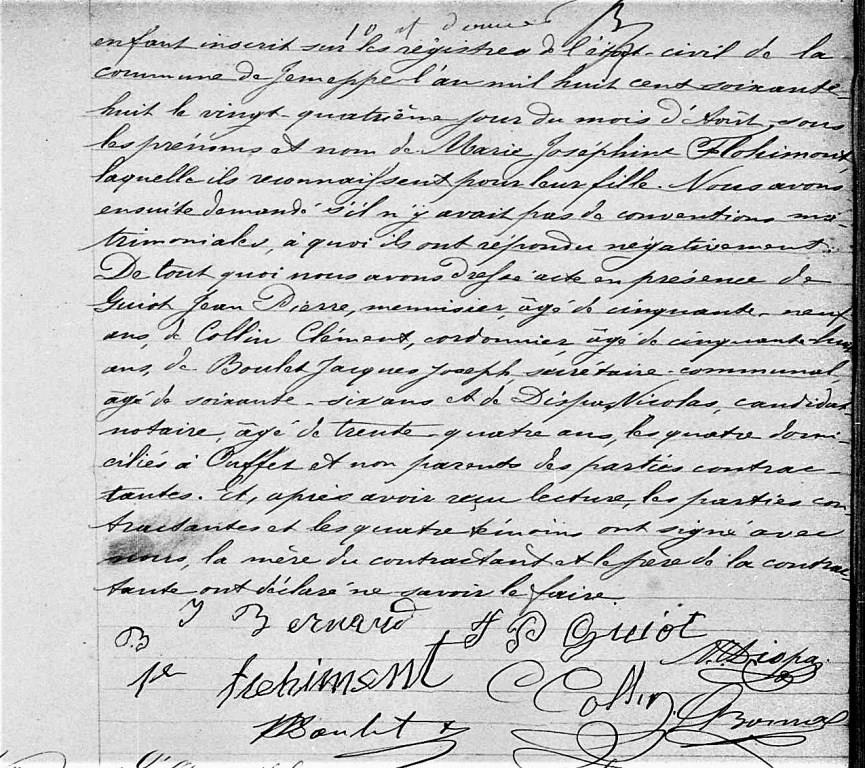 enfant inscrit sur les registres de l'état-civil de la
commune de Jemeppe l'an mil huit cent soixante-
huit le vingt-quatrième jour du mois d'Août sous
les prénoms et nom de Marie Joséphine Flohimont,
laquelle ils reconnaissent pour leur fille. Nous avons
ensuite demandé s'il n'y avait pas de conventions ma-
trimoniales, à quoi ils ont répondu négativement.
De tout quoi nous avons dressé acte en présence de
Guiot Jean Pierre, menuisier, âgé de cinquante-neuf
ans, de Collin Clément, cordonnier, âgé de cinquante-
ans, de Boulet Jacques Joseph, secrétaire-communal,
âgé de soixante-six ans et de Dispa, Nicolas, candidat
notaire, âgé de trente-quatre ans, les quatre domi-
ciliés à Ouffet et non parents des parties contrac-
tantes. Et, après avoir reçu lecture, les parties con-
tractantes et les quatre témoins ont signé avec
nous, la mère du contractant et le père de la contrac-
tante ont déclaré ne savoir le faire.
J Bernard J P Guiot
B N. Dispa
flohimont C Collin
Boulet